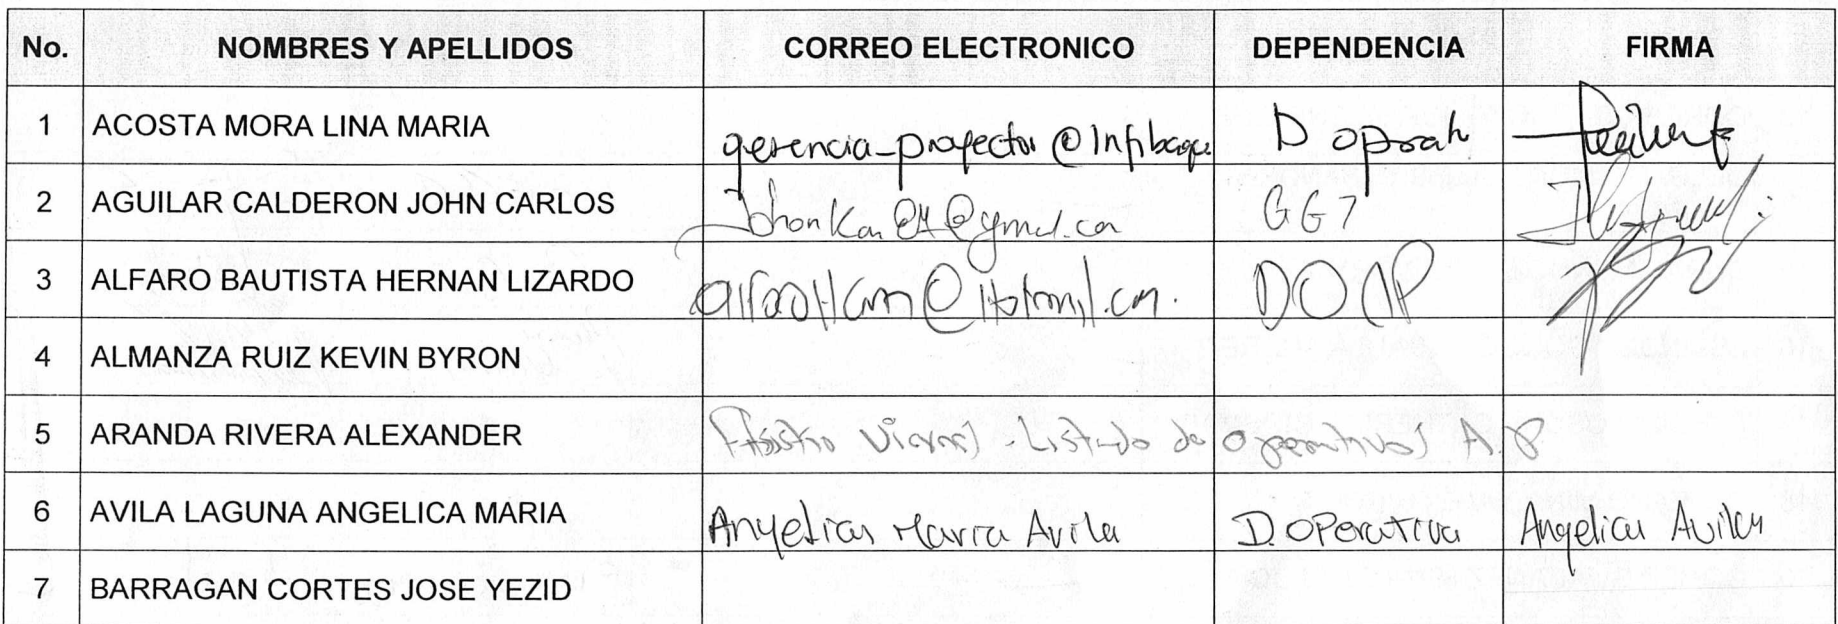 No. NOMBRES Y APELLIDOS CORREO ELECTRONICO DEPENDENCIA FIRMA
1 ACOSTA MORA LINA MARIA gerencia_proyector @Infibague D
2 AGUILAR CALDERON JOHN CARLOS GG7
3 ALFARO BAUTISTA HERNAN LIZARDO
4 ALMANZA RUIZ KEVIN BYRON
5 ARANDA RIVERA ALEXANDER Listado de operativos A.P
6 AVILA LAGUNA ANGELICA MARIA Angelica Maria Avila D. operativa Angelica Avila
7 BARRAGAN CORTES JOSE YEZID